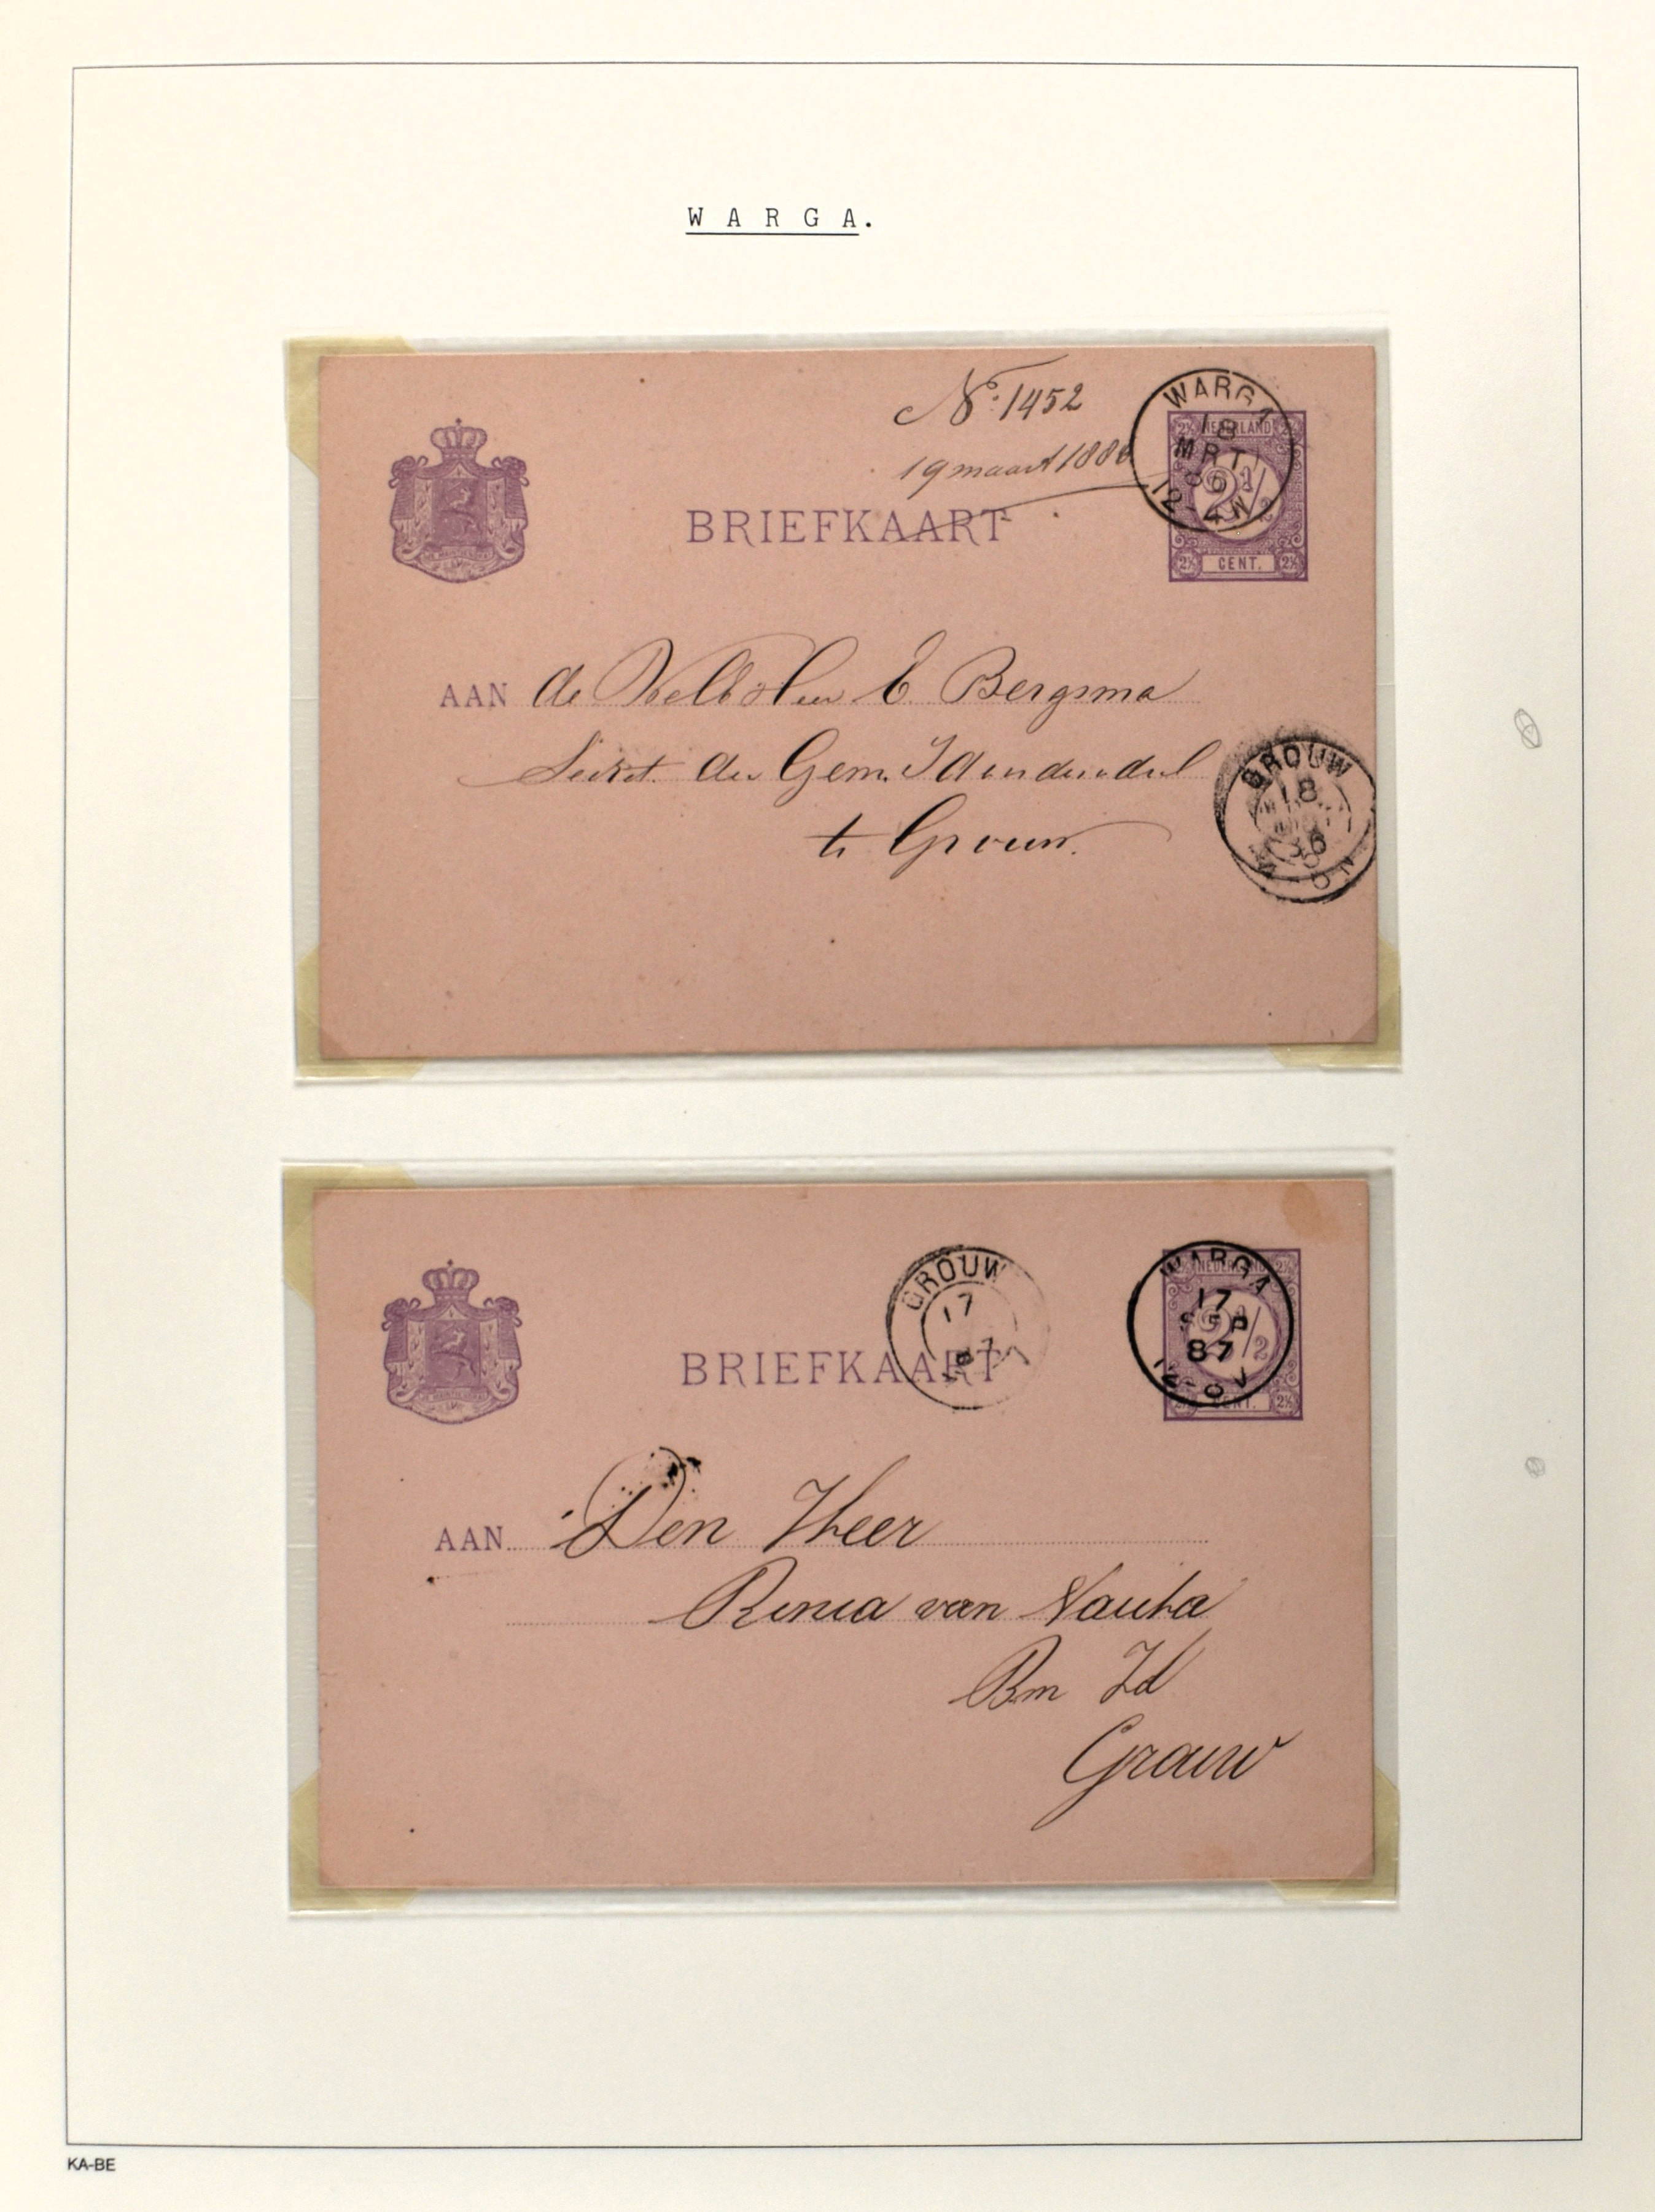 W A R G A.
No. 1452
19 maart 1886
WARGA
18
MRT
86
12-4N
NEDERLAND
2½
CENT.
BRIEFKAART
AAN de E Bergsma
Secret. der Gem. Idaarderadeel
te Grouw.
GROUW
18
86
GROUW
17
87
WARGA
17
SEP
87
12-8V
NEDERLAND
2½
CENT.
BRIEFKAART
AAN Den Heer
Renia van Nauta
Bm Id
Grouw
KA-BE